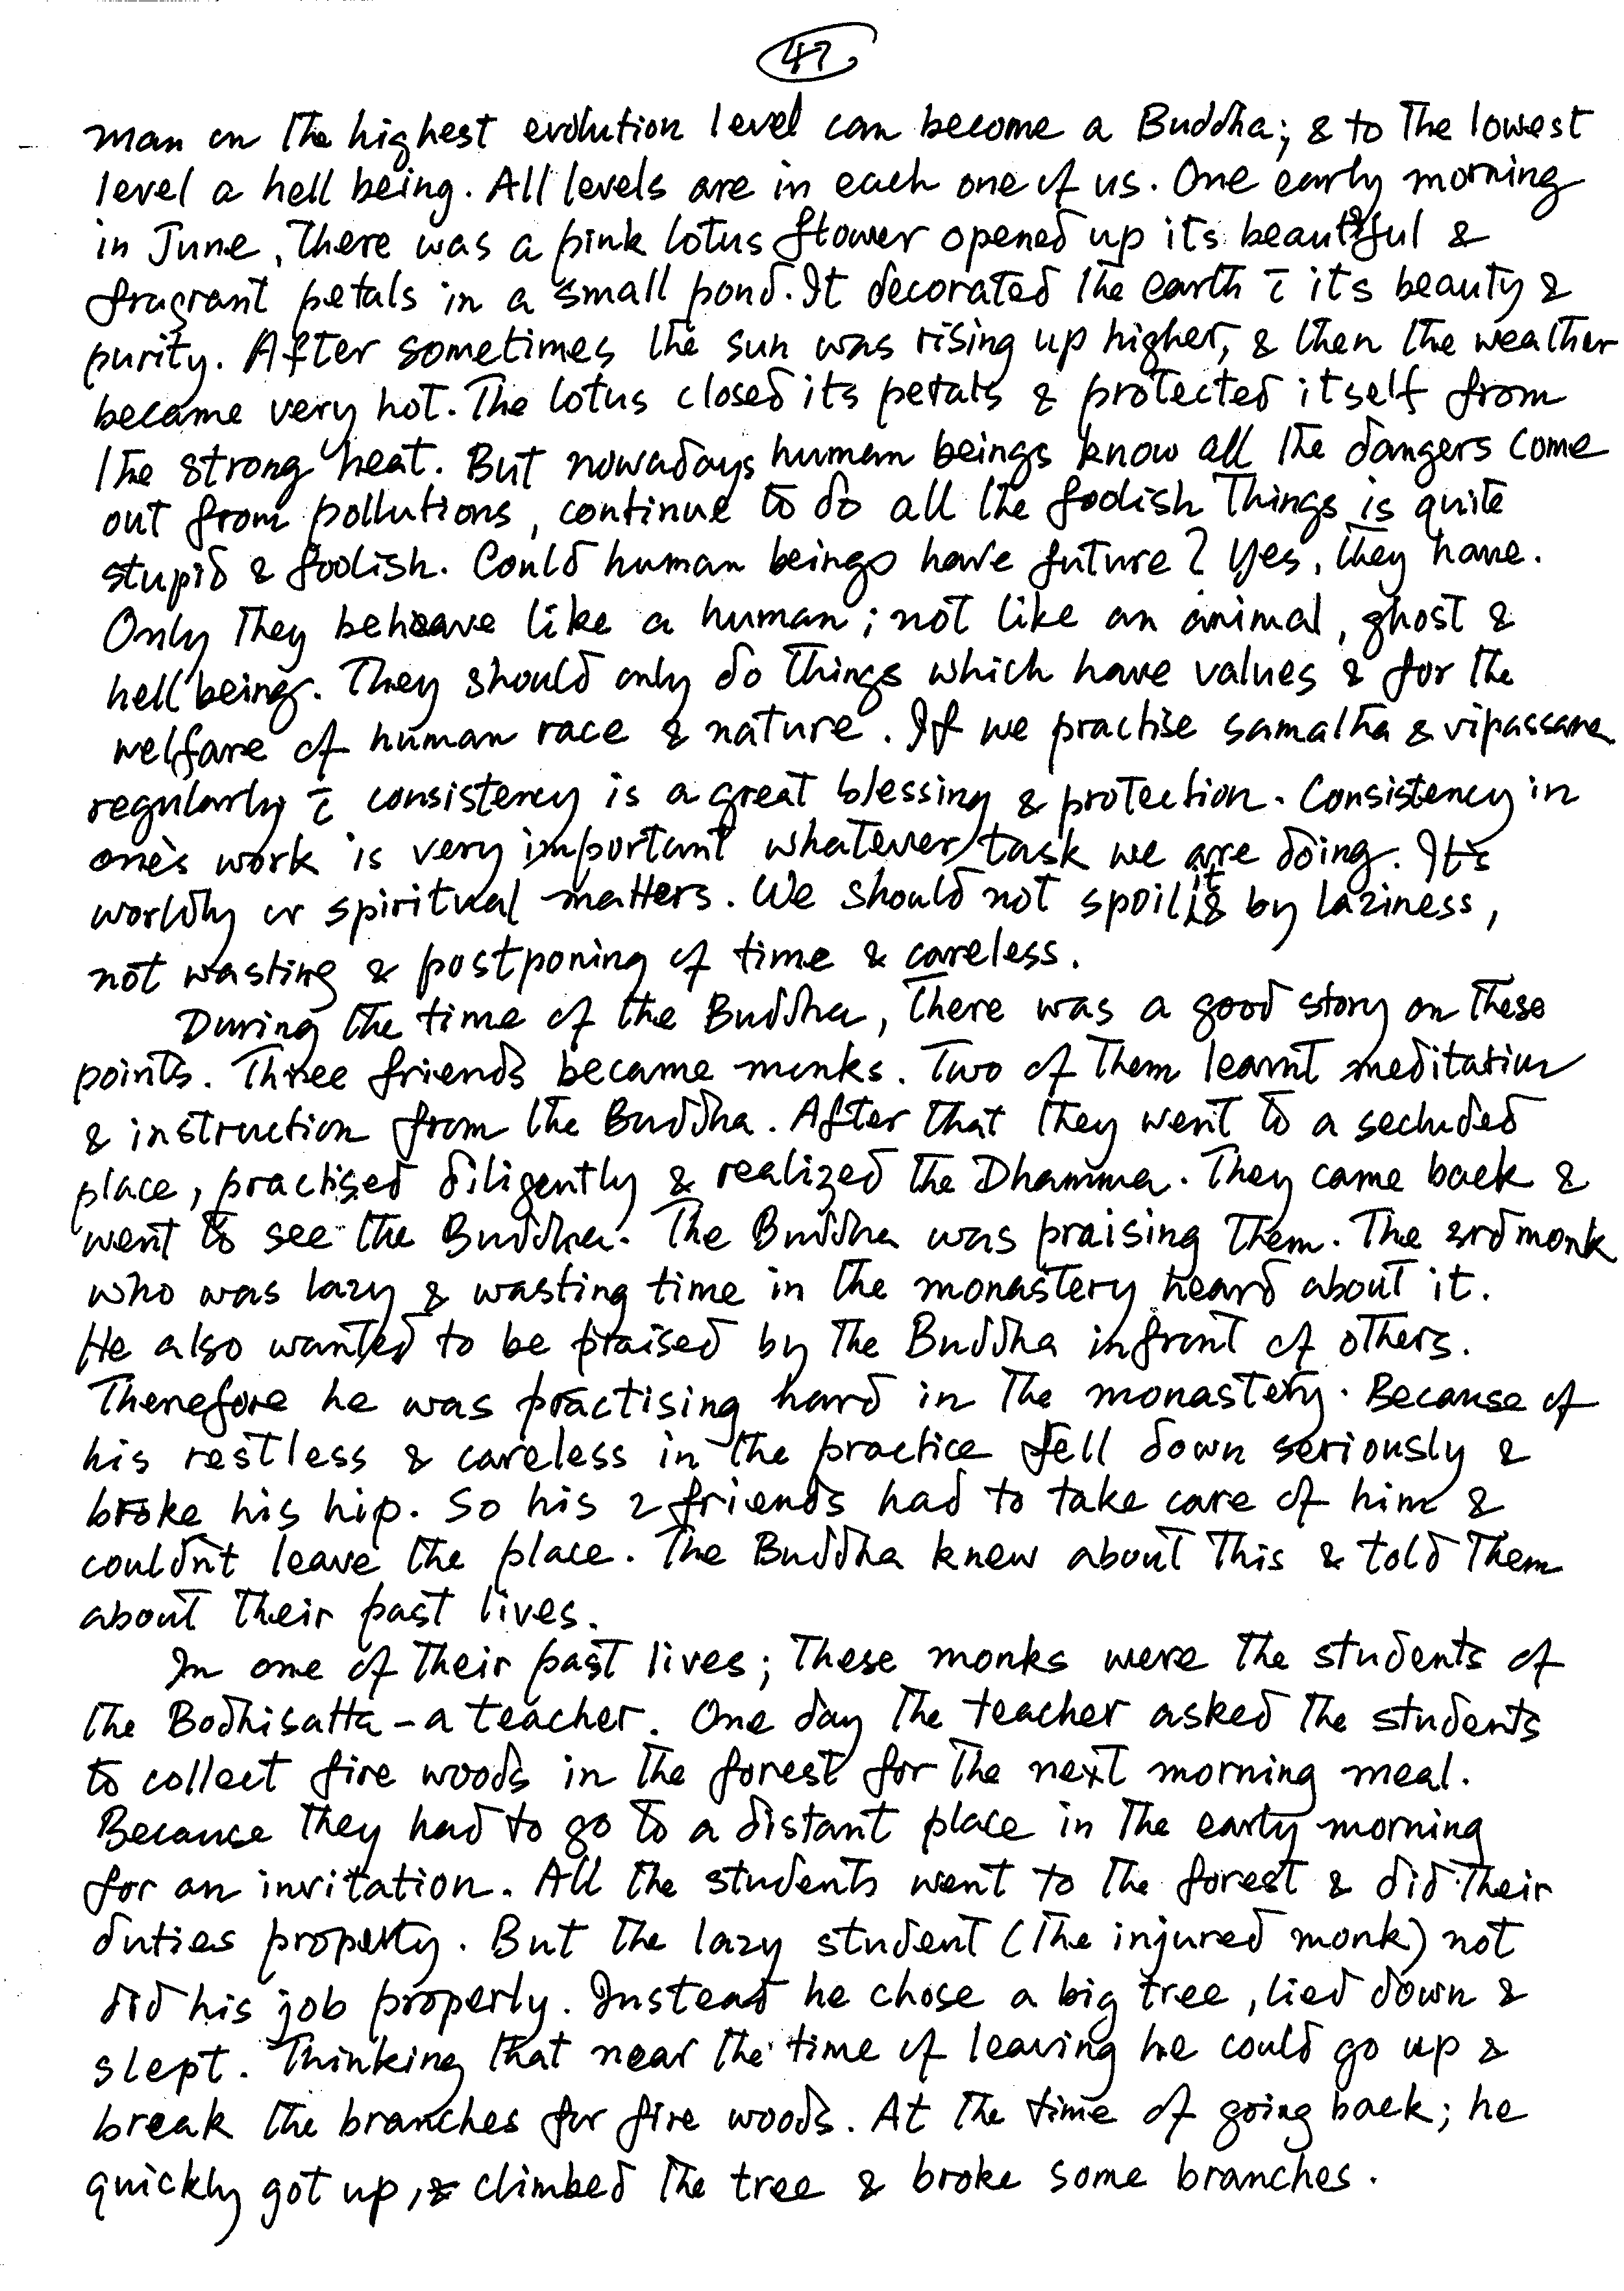 47
man on the highest evolution level can become a Buddha; & to the lowest
level a hell being. All levels are in each one of us. One early morning
in June, there was a pink lotus flower opened up its beautiful &
fragrant petals in a small pond. It decorated the earth c̄ its beauty &
purity. After sometimes the sun was rising up higher, & then the weather
became very hot. The lotus closed its petals & protected itself from
the strong heat. But nowadays human beings know all the dangers come
out from pollutions, continue to do all the foolish things is quite
stupid & foolish. Could human beings have future? Yes, they have.
Only they behave like a human; not like an animal, ghost &
hell being. They should only do things which have values & for the
welfare of human race & nature. If we practise samatha & vipassana
regularly c̄ consistency is a great blessing & protection. Consistency in
one's work is very important whatever task we are doing. It's
worldly or spiritual matters. We should not spoil it by laziness,
not wasting & postponing of time & careless.
During the time of the Buddha, there was a good story on these
points. Three friends became monks. Two of them learnt meditation
& instruction from the Buddha. After that they went to a secluded
place, practised diligently & realized the Dhamma. They came back &
went to see the Buddha. The Buddha was praising them. The 3rd monk
who was lazy & wasting time in the monastery heard about it.
He also wanted to be praised by the Buddha infront of others.
Therefore he was practising hard in the monastery. Because of
his restless & careless in the practice fell down seriously &
broke his hip. So his 2 friends had to take care of him &
couldn't leave the place. The Buddha knew about this & told them
about their past lives.
In one of their past lives; these monks were the students of
the Bodhisatta - a teacher. One day the teacher asked the students
to collect fire woods in the forest for the next morning meal.
Because they had to go to a distant place in the early morning
for an invitation. All the students went to the forest & did their
duties properly. But the lazy student (the injured monk) not
did his job properly. Instead he chose a big tree, lied down &
slept. Thinking that near the time of leaving he could go up &
break the branches for fire woods. At the time of going back; he
quickly got up, & climbed the tree & broke some branches.